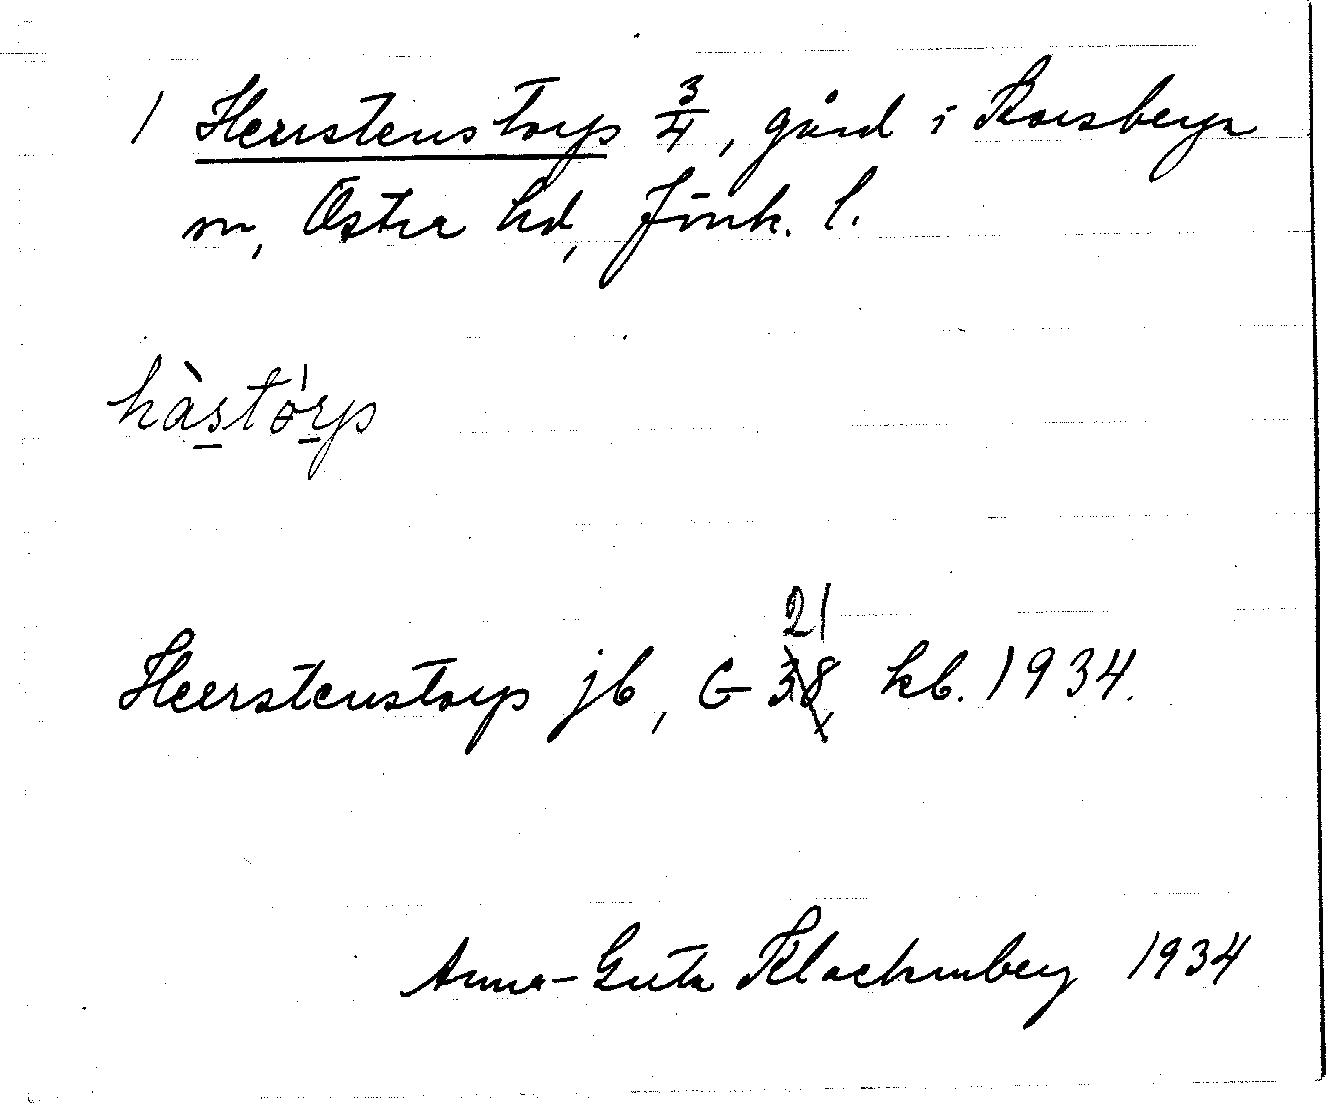 1 Herrstenstorp 3/4, gård i Korsberga
sn, Östra hd, Jönk. l.
hàstórp
Heerstenstorp jb, G 21 38 kb. 1934.
Anna-Greta Klachenberg 1934